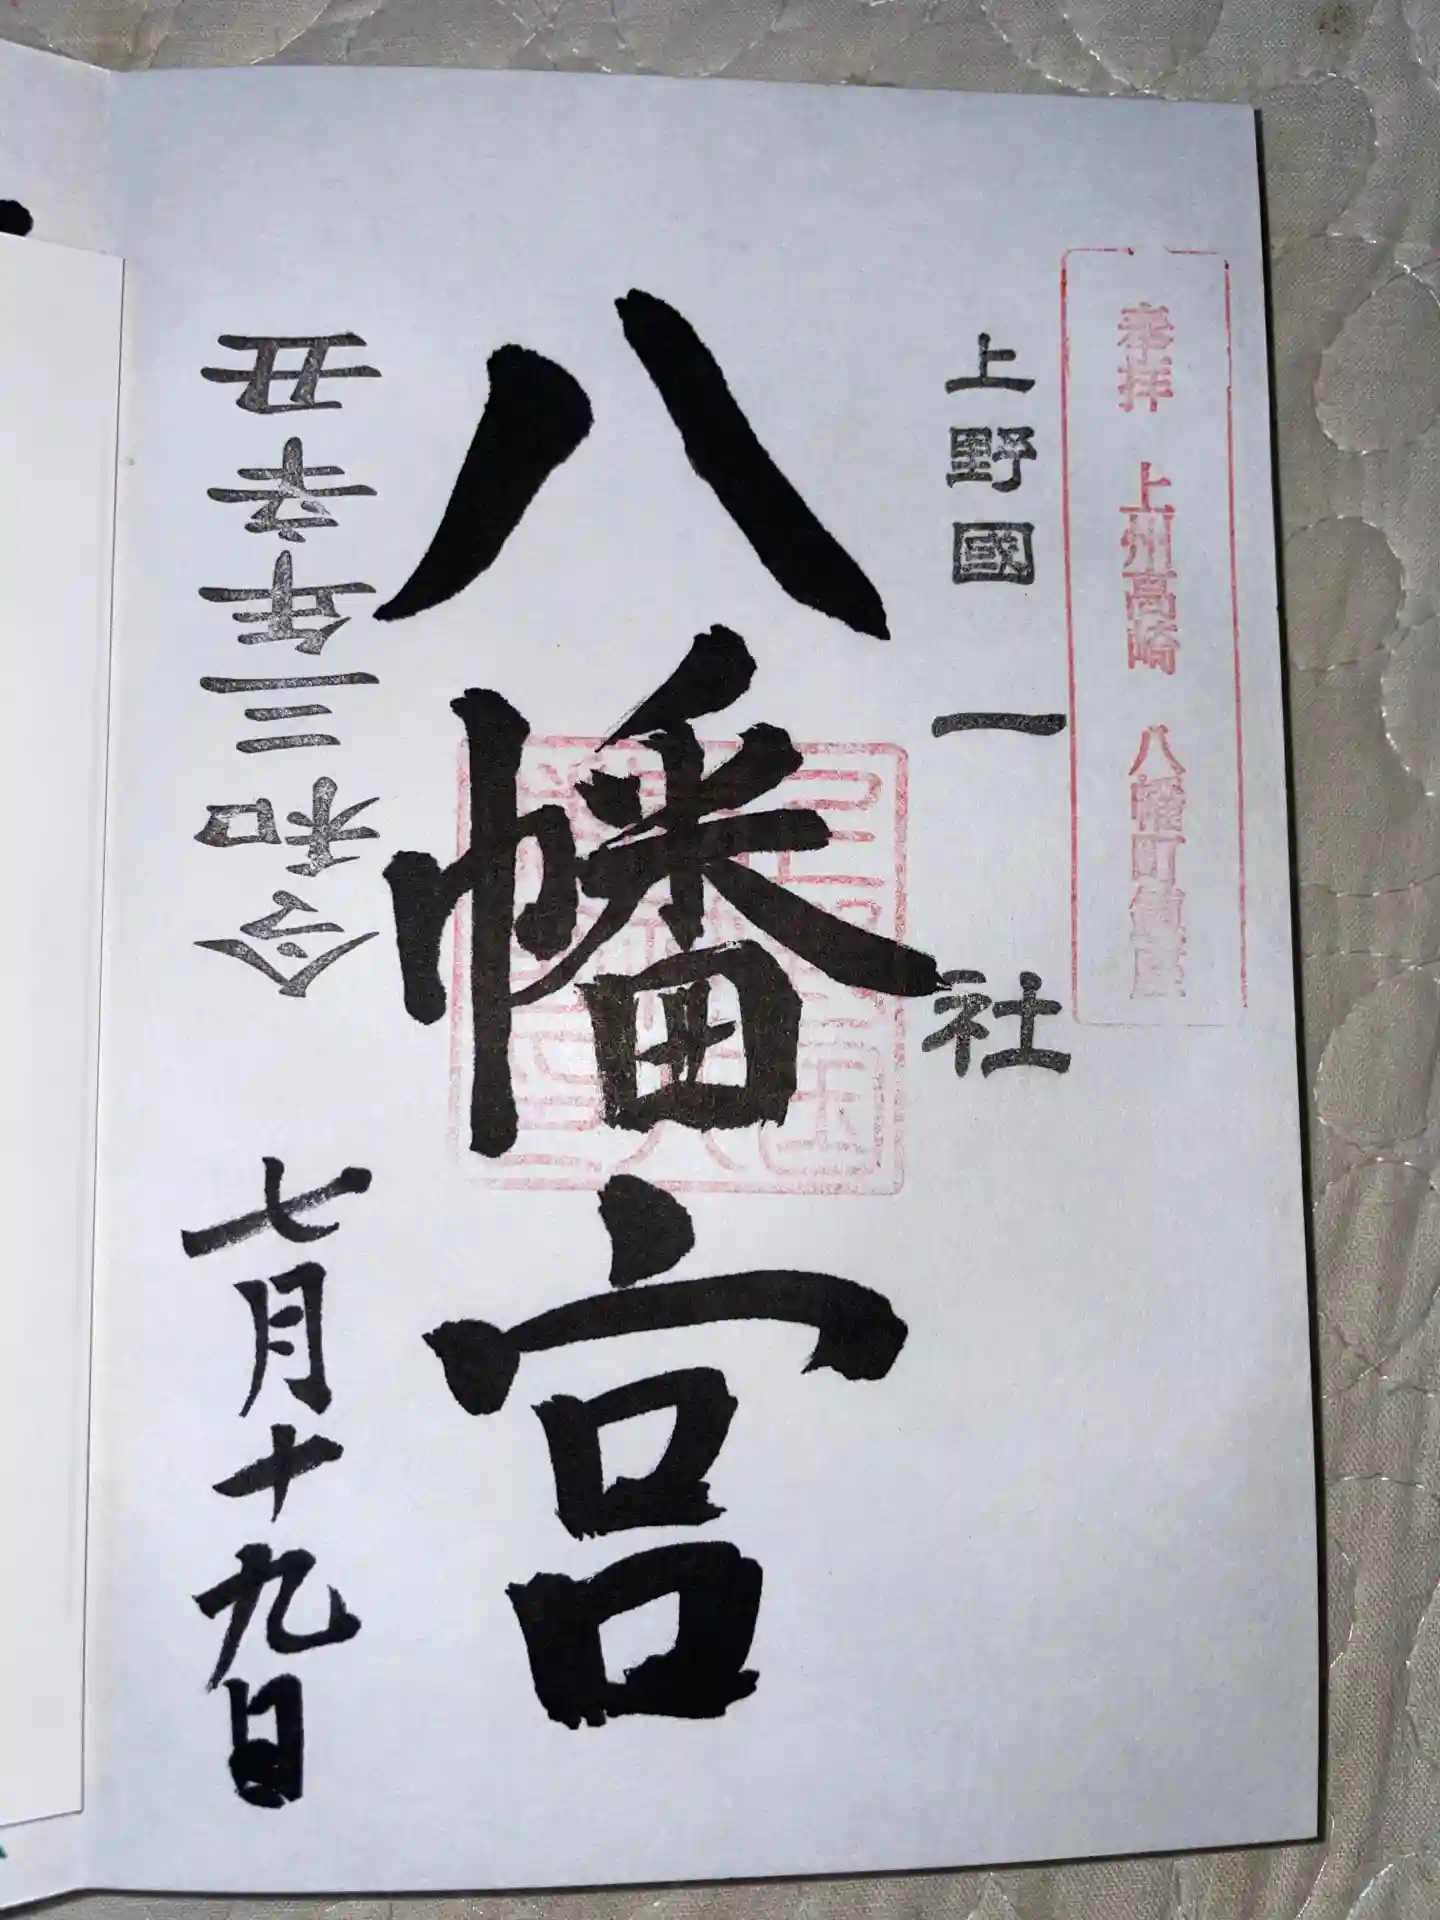 奉拝 上州高崎 八幡町鎮座
上野國一社
八幡宮
令和三年辛丑 七月十九日